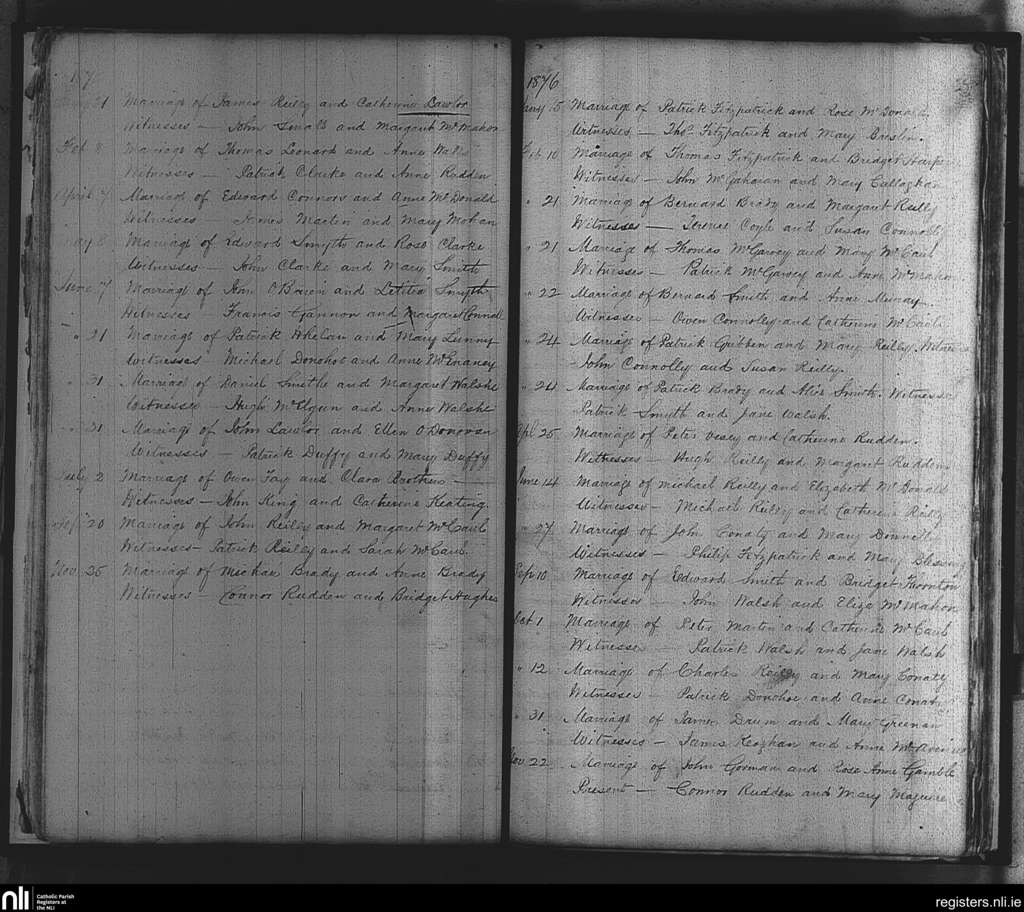 187
21 Marriage of James Reilly and Catherine Lawlor
Witnesses — John Small and Margaret McMahon
Feb 8 Marriage of Thomas Leonard and Anne Walsh
Witnesses — Patrick Clarke and Anne Rudden
April 7 Marriage of Edward Connors and Anne McDonald
Witnesses — James Martin and Mary Mohan
May 8 Marriage of Edward Smyth and Rose Clarke
Witnesses — John Clarke and Mary Smith
June 7 Marriage of and Letitia Smyth
Witnesses Francis Gannon and Margaret Connell
" 21 Marriage of Patrick Whelan and Mary Lunny
Witnesses Michael Donohoe and Anne McEnaney
" 21 Marriage of Daniel Smithe and Margaret Walshe
Witnesses — Hugh and Anne Walshe
" 21 Marriage of John Lawlor and Ellen O'Donovan
Witnesses — Patrick Duffy and Mary Duffy
July 2 Marriage of Owen Fay and Clara Brothers —
Witnesses — John King and Catherine Keating
Sept 20 Marriage of John Reilly and Margaret McCaul
Witnesses — Patrick Reilly and Sarah McCaul
Nov 25 Marriage of Michael Brady and Anne Brady
Witnesses — Connor Rudden and Bridget Hughes
1876
5 Marriage of Patrick Fitzpatrick and Rose McDonald
Witnesses — Thos Fitzpatrick and Mary Breslin
Feb 10 Marriage of Thomas Fitzpatrick and Bridget
Witnesses — John McGaharan and Mary Callaghan
" 21 Marriage of Bernard Brady and Margaret Reilly
Witnesses — Terence Coyle and Susan Connolly
" 21 Marriage of Thomas McGarvey and Mary McCaul
Witnesses — Patrick McGarvey and Anne McMahon
" 22 Marriage of Bernard Smith and Anne Murray
Witnesses — Owen Connolly and Catherine McCaul
" 24 Marriage of Patrick Gubben and Mary Reilly Witnesses
John Connolly and Susan Reilly
" 24 Marriage of Patrick Brady and Alice Smith. Witnesses
Patrick Smyth and Jane Walsh
Apl 25 Marriage of Peter Vesey and Catherine Rudden.
Witnesses — Hugh Reilly and Margaret Rudden
June 14 Marriage of Michael Reilly and Elizabeth McDonald
Witnesses — Michael Reilly and Catherine Reilly
" 27 Marriage of John Conaty and Mary Donnell
Witnesses — Philip Fitzpatrick and Mary Blessing
Sep 10 Marriage of Edward Smith and Bridget Thornton
Witnesses — John Walsh and Eliza McMahon
Oct 1 Marriage of Peter Martin and Catherine McCaul
Witnesses — Patrick Walsh and Jane Walsh
" 12 Marriage of Charles Reilly and Mary Conaty
Witnesses — Patrick Donohoe and Anne Conaty
" 31 Marriage of James Drum and Mary Greenan
Witnesses — James Keaghan and Anne
Nov 22 Marriage of John Gorman and Rose Anne Gamble
Present — Connor Rudden and Mary Maguire
nli Catholic Parish
Registers at
the NLI
registers.nli.ie